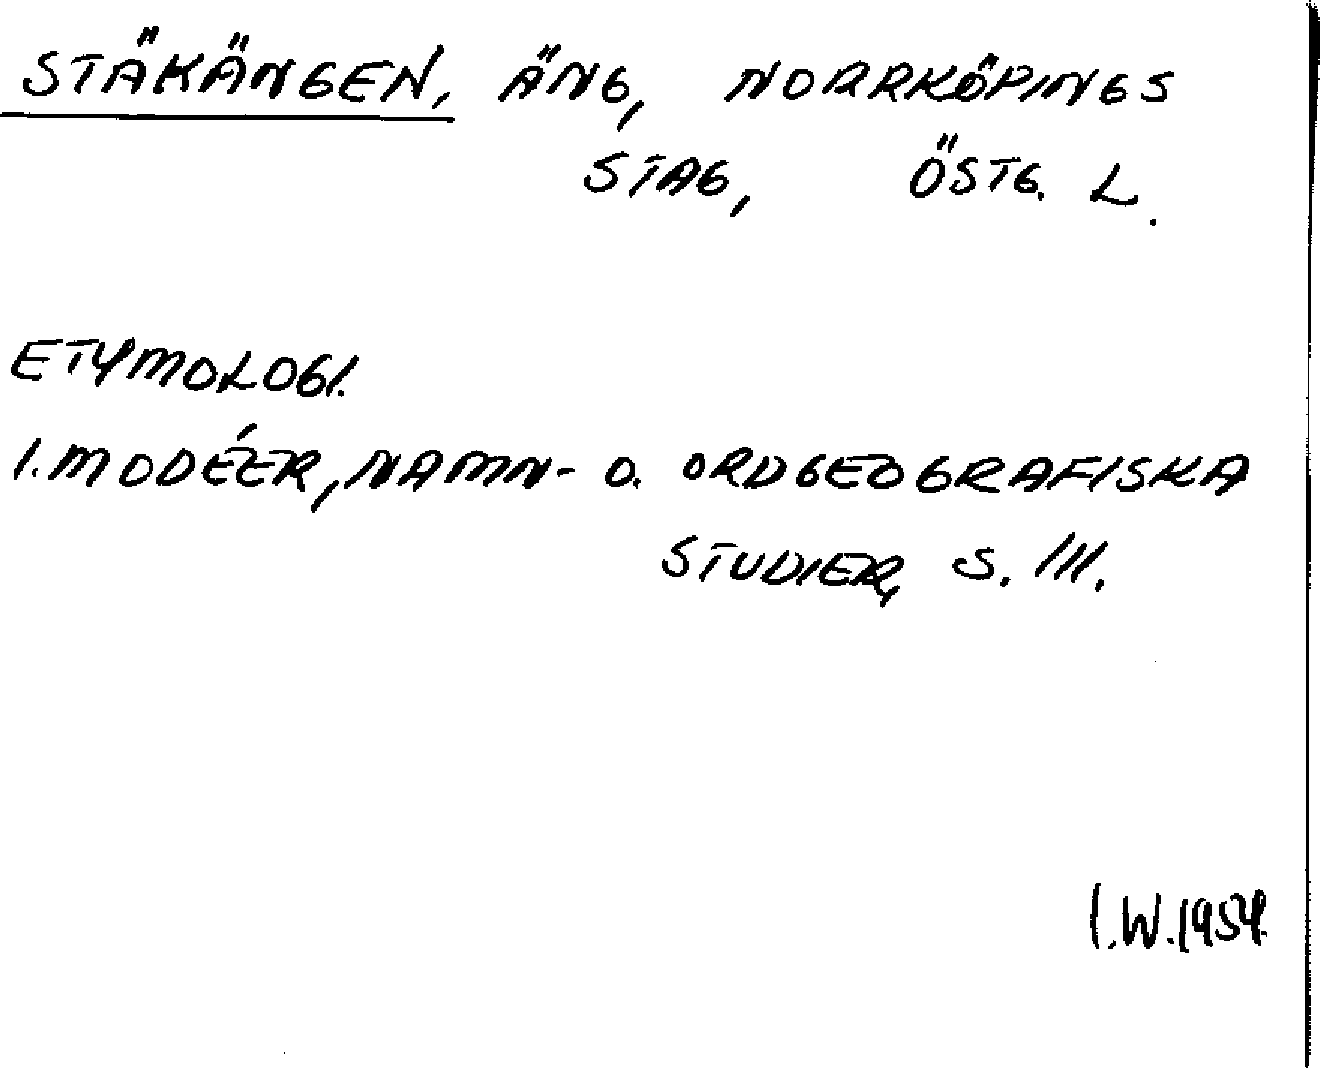 STÄKÄNGEN, ÄNG, NORRKÖPINGS
STAG, ÖSTG. L.
ETYMOLOGI.
I. MODÉER, NAMN- O. ORDGEOGRAFISKA
STUDIER, S. 111.
I.W. 1954.